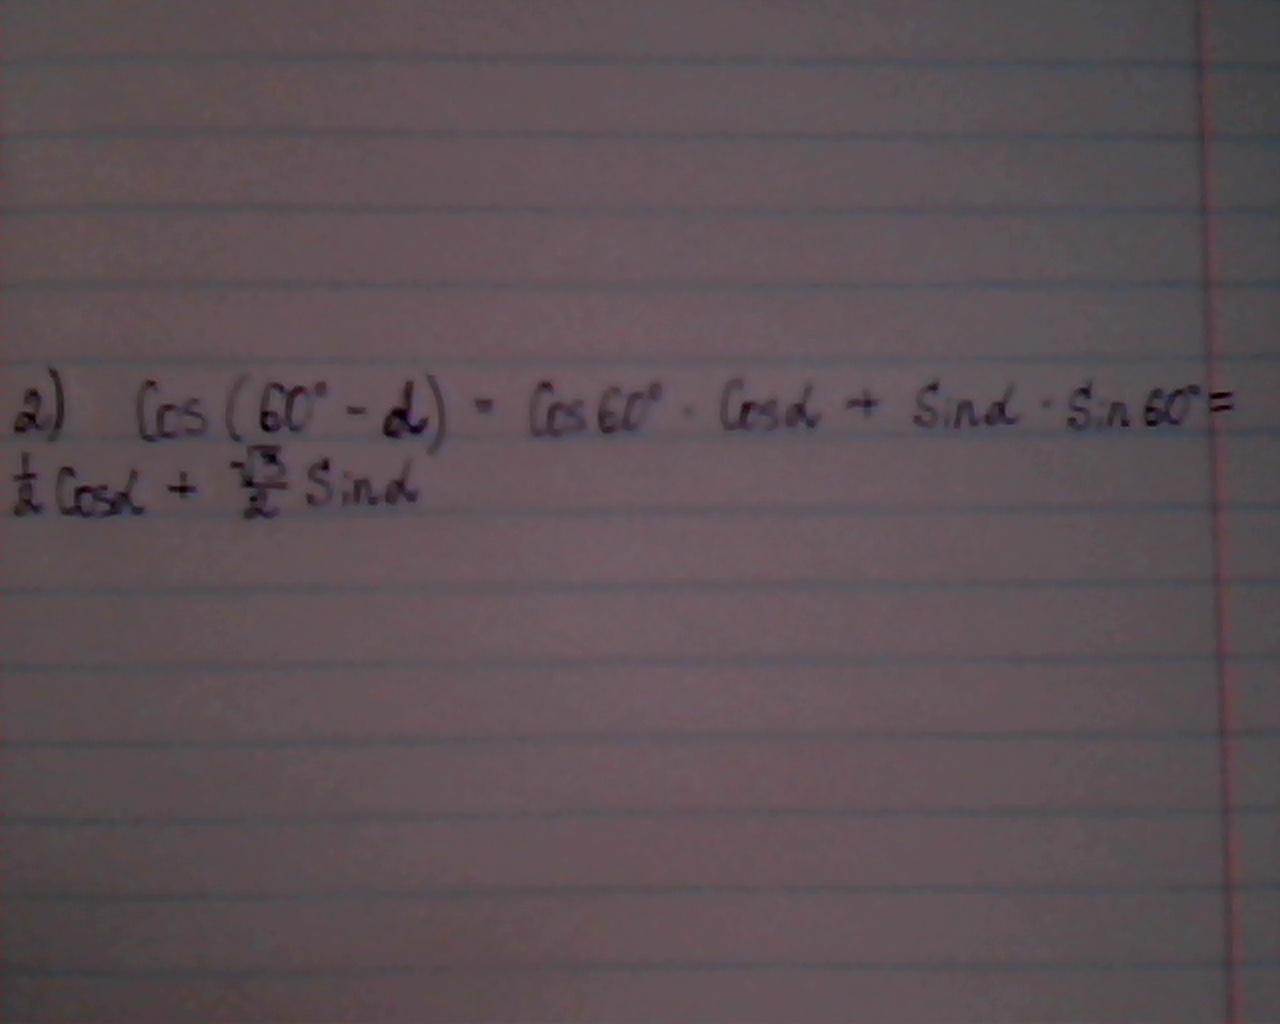 2) Cos (60° - α) = Cos 60° · Cosα + Sinα · Sin 60° =
1/2 Cosα + √3/2 Sinα